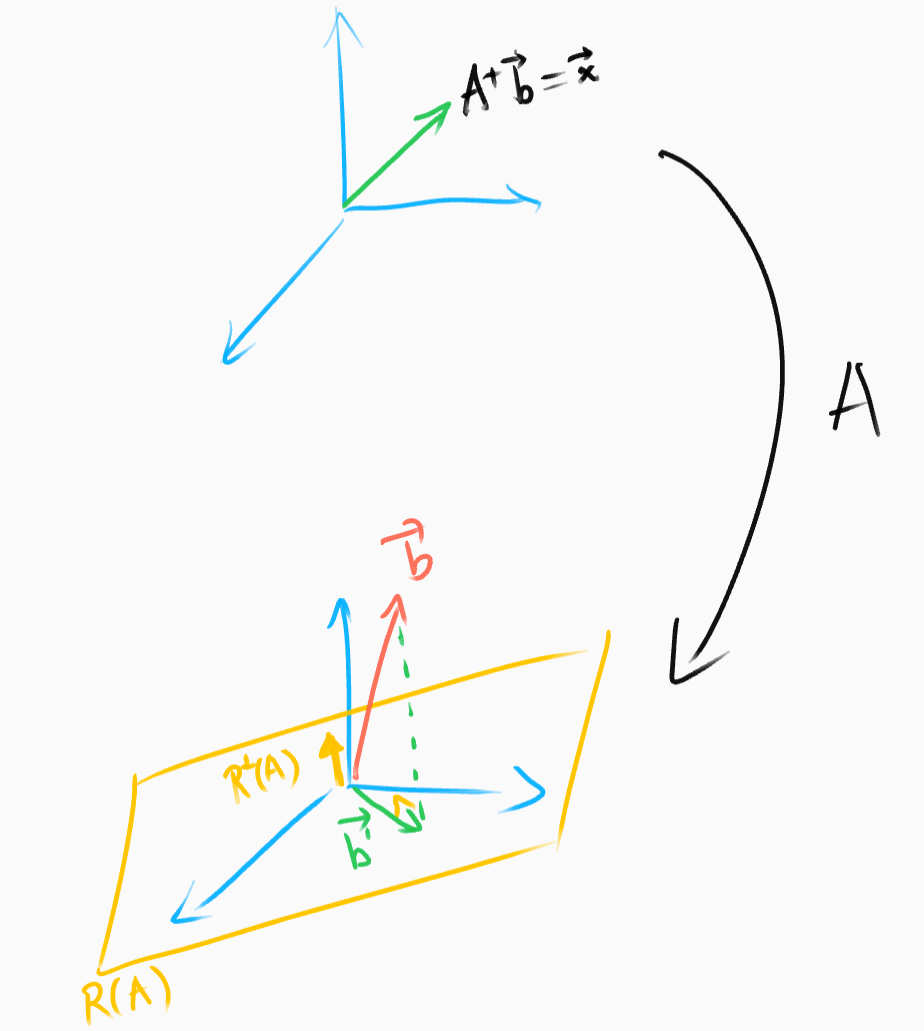 A⁺b⃗=x⃗
A
b⃗
R⊥(A)
b⃗'
R(A)